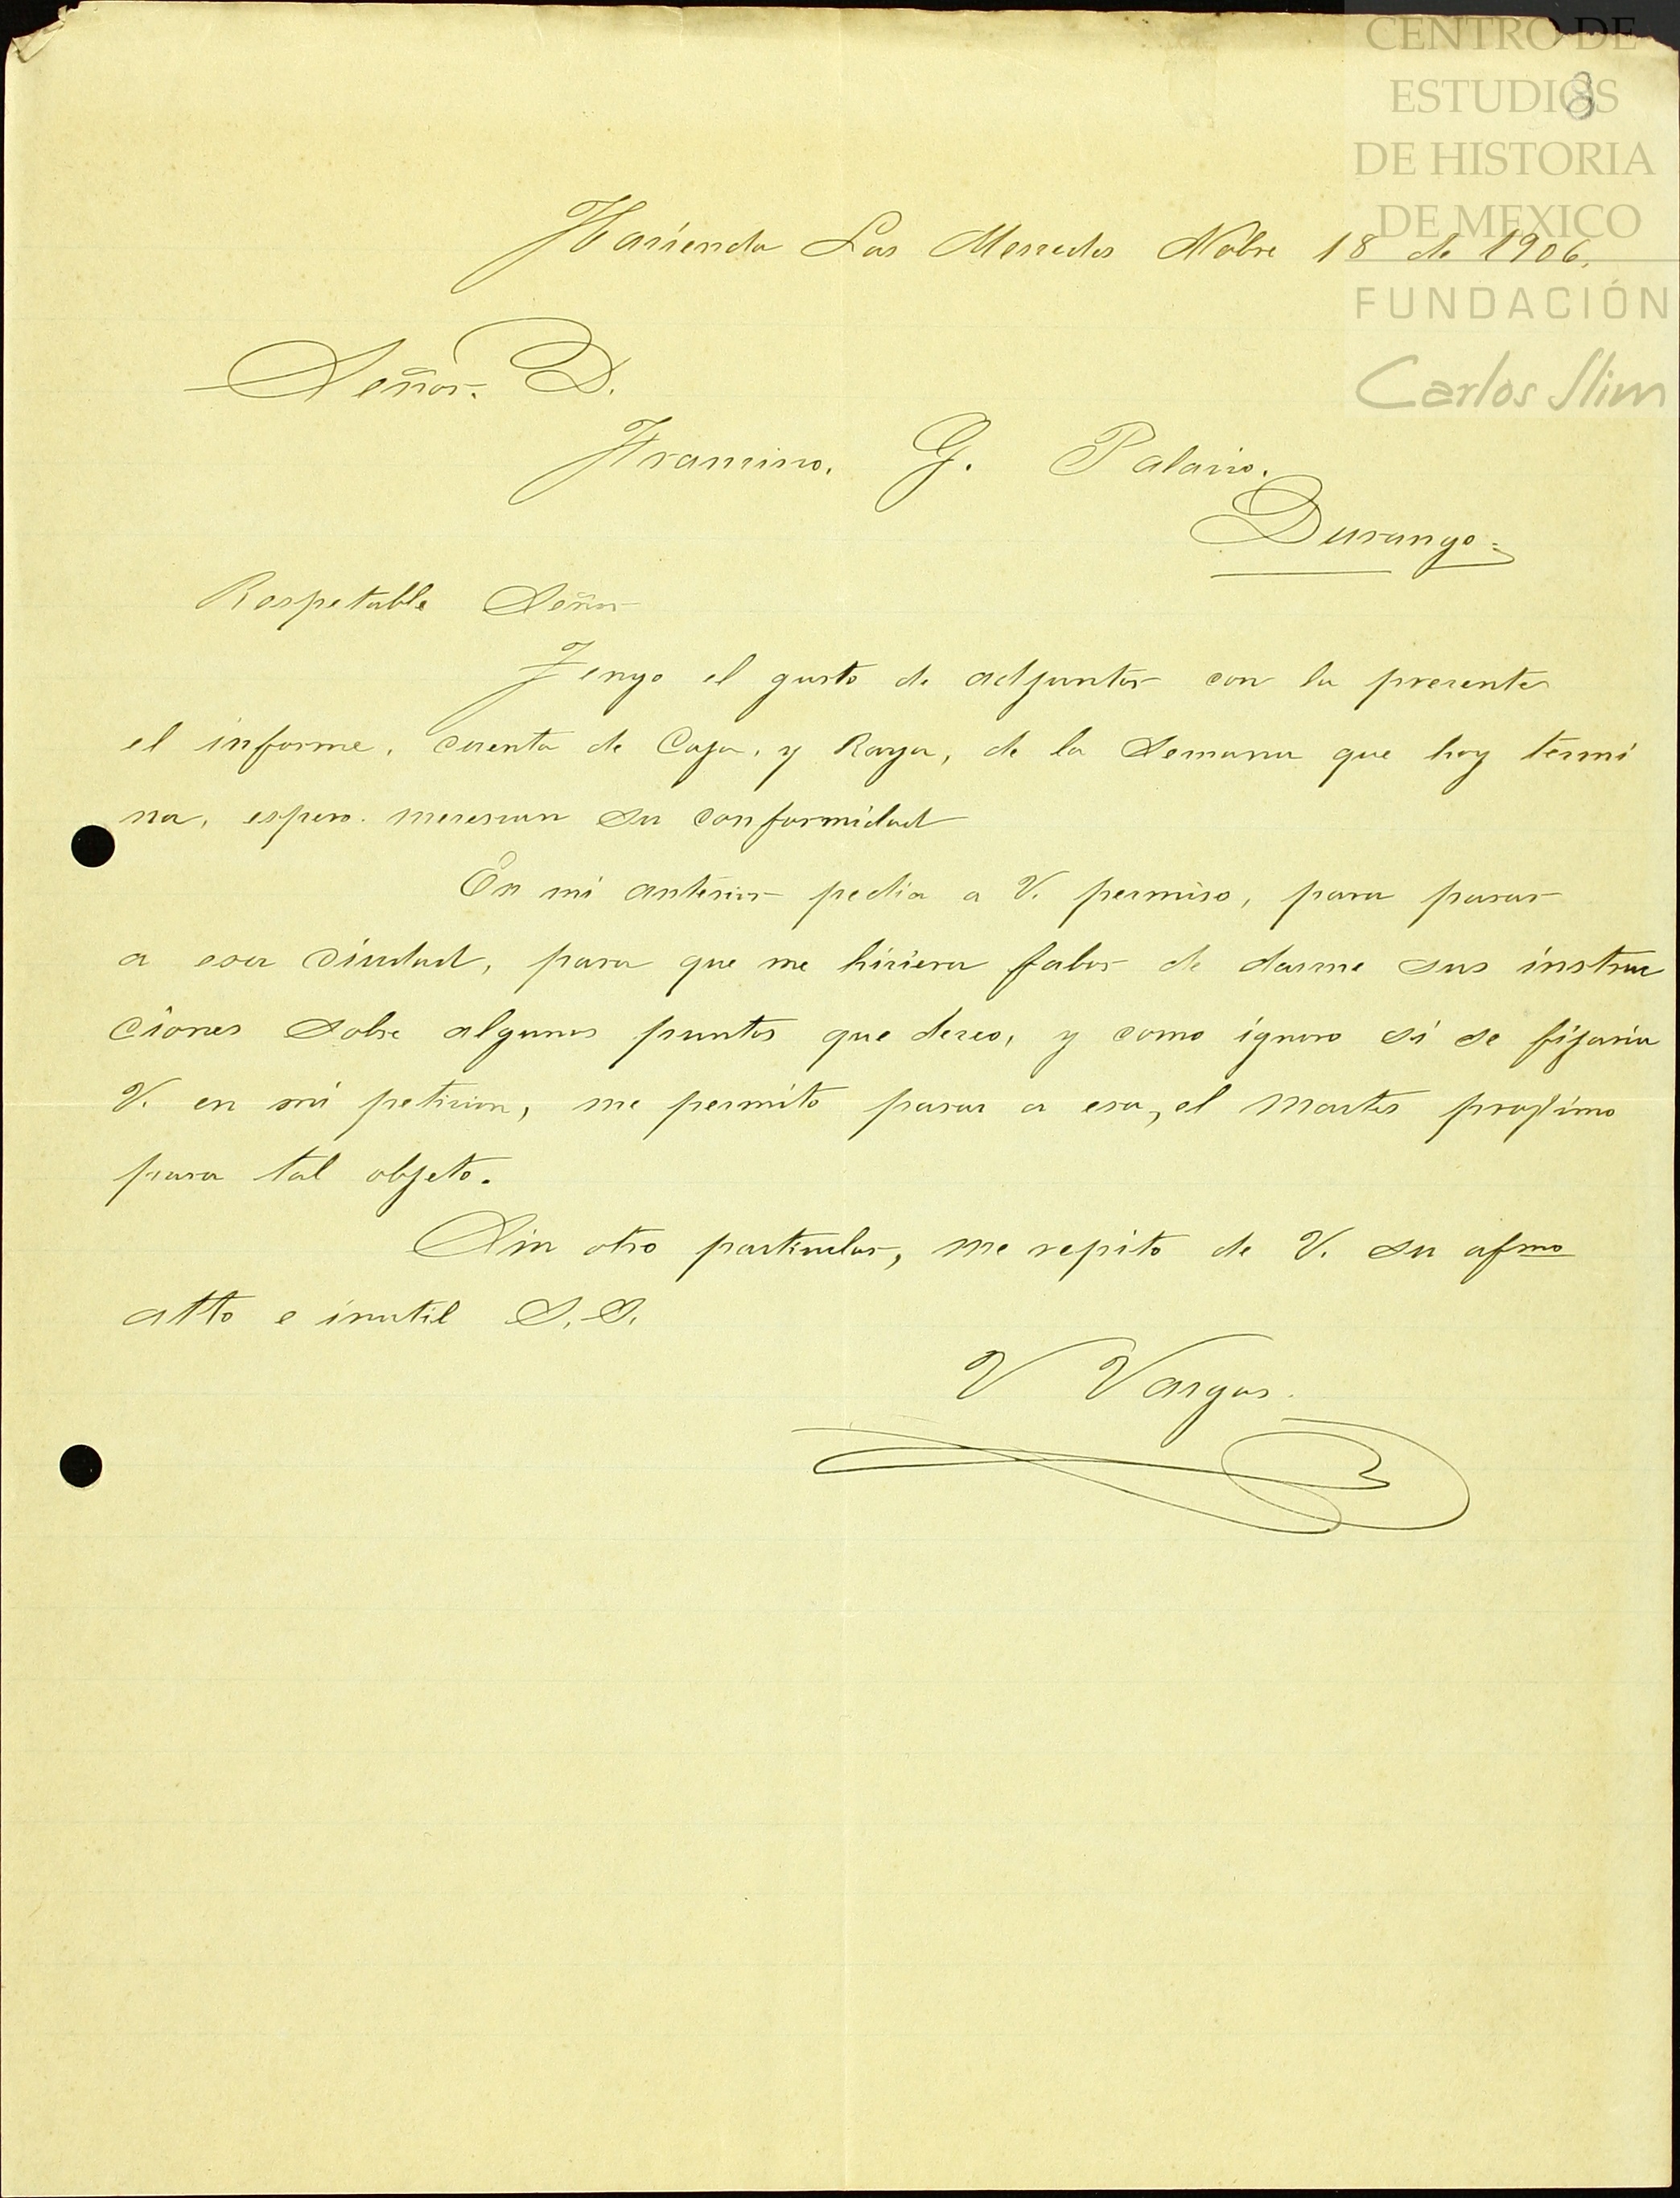 CENTRO DE
ESTUDIOS
DE HISTORIA
DE MEXICO
FUNDACIÓN
Carlos Slim
8
Hacienda Las Mercedes Nobre 18 de 1906.
Señor. D.
Francisco. G. Palacio.
Durango.
Respetable Señor
Tengo el gusto de adjuntar con la presente
el informe, cuenta de Caja, y Raya, de la Semana que hoy termi
na, espero. merescan su conformidad
En mi anterior pedia a V. permiso, para pasar
a esa Ciudad, para que me hiciera fabor de darme sus instruc
ciones sobre algunos puntos que deseo, y como ignoro si se fijaria
V. en mi peticion, me permito pasar a esa, el Martes proximo
para tal objeto.
Sin otro particular, me repito de V. su afmo
atto e inutil S. S.
V Vargas.